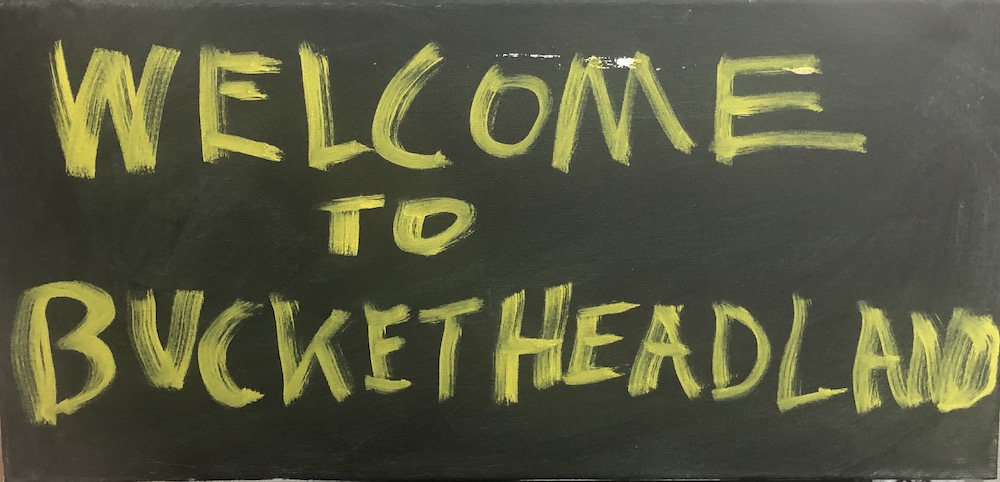 WELCOME
TO
BUCKETHEADLAND